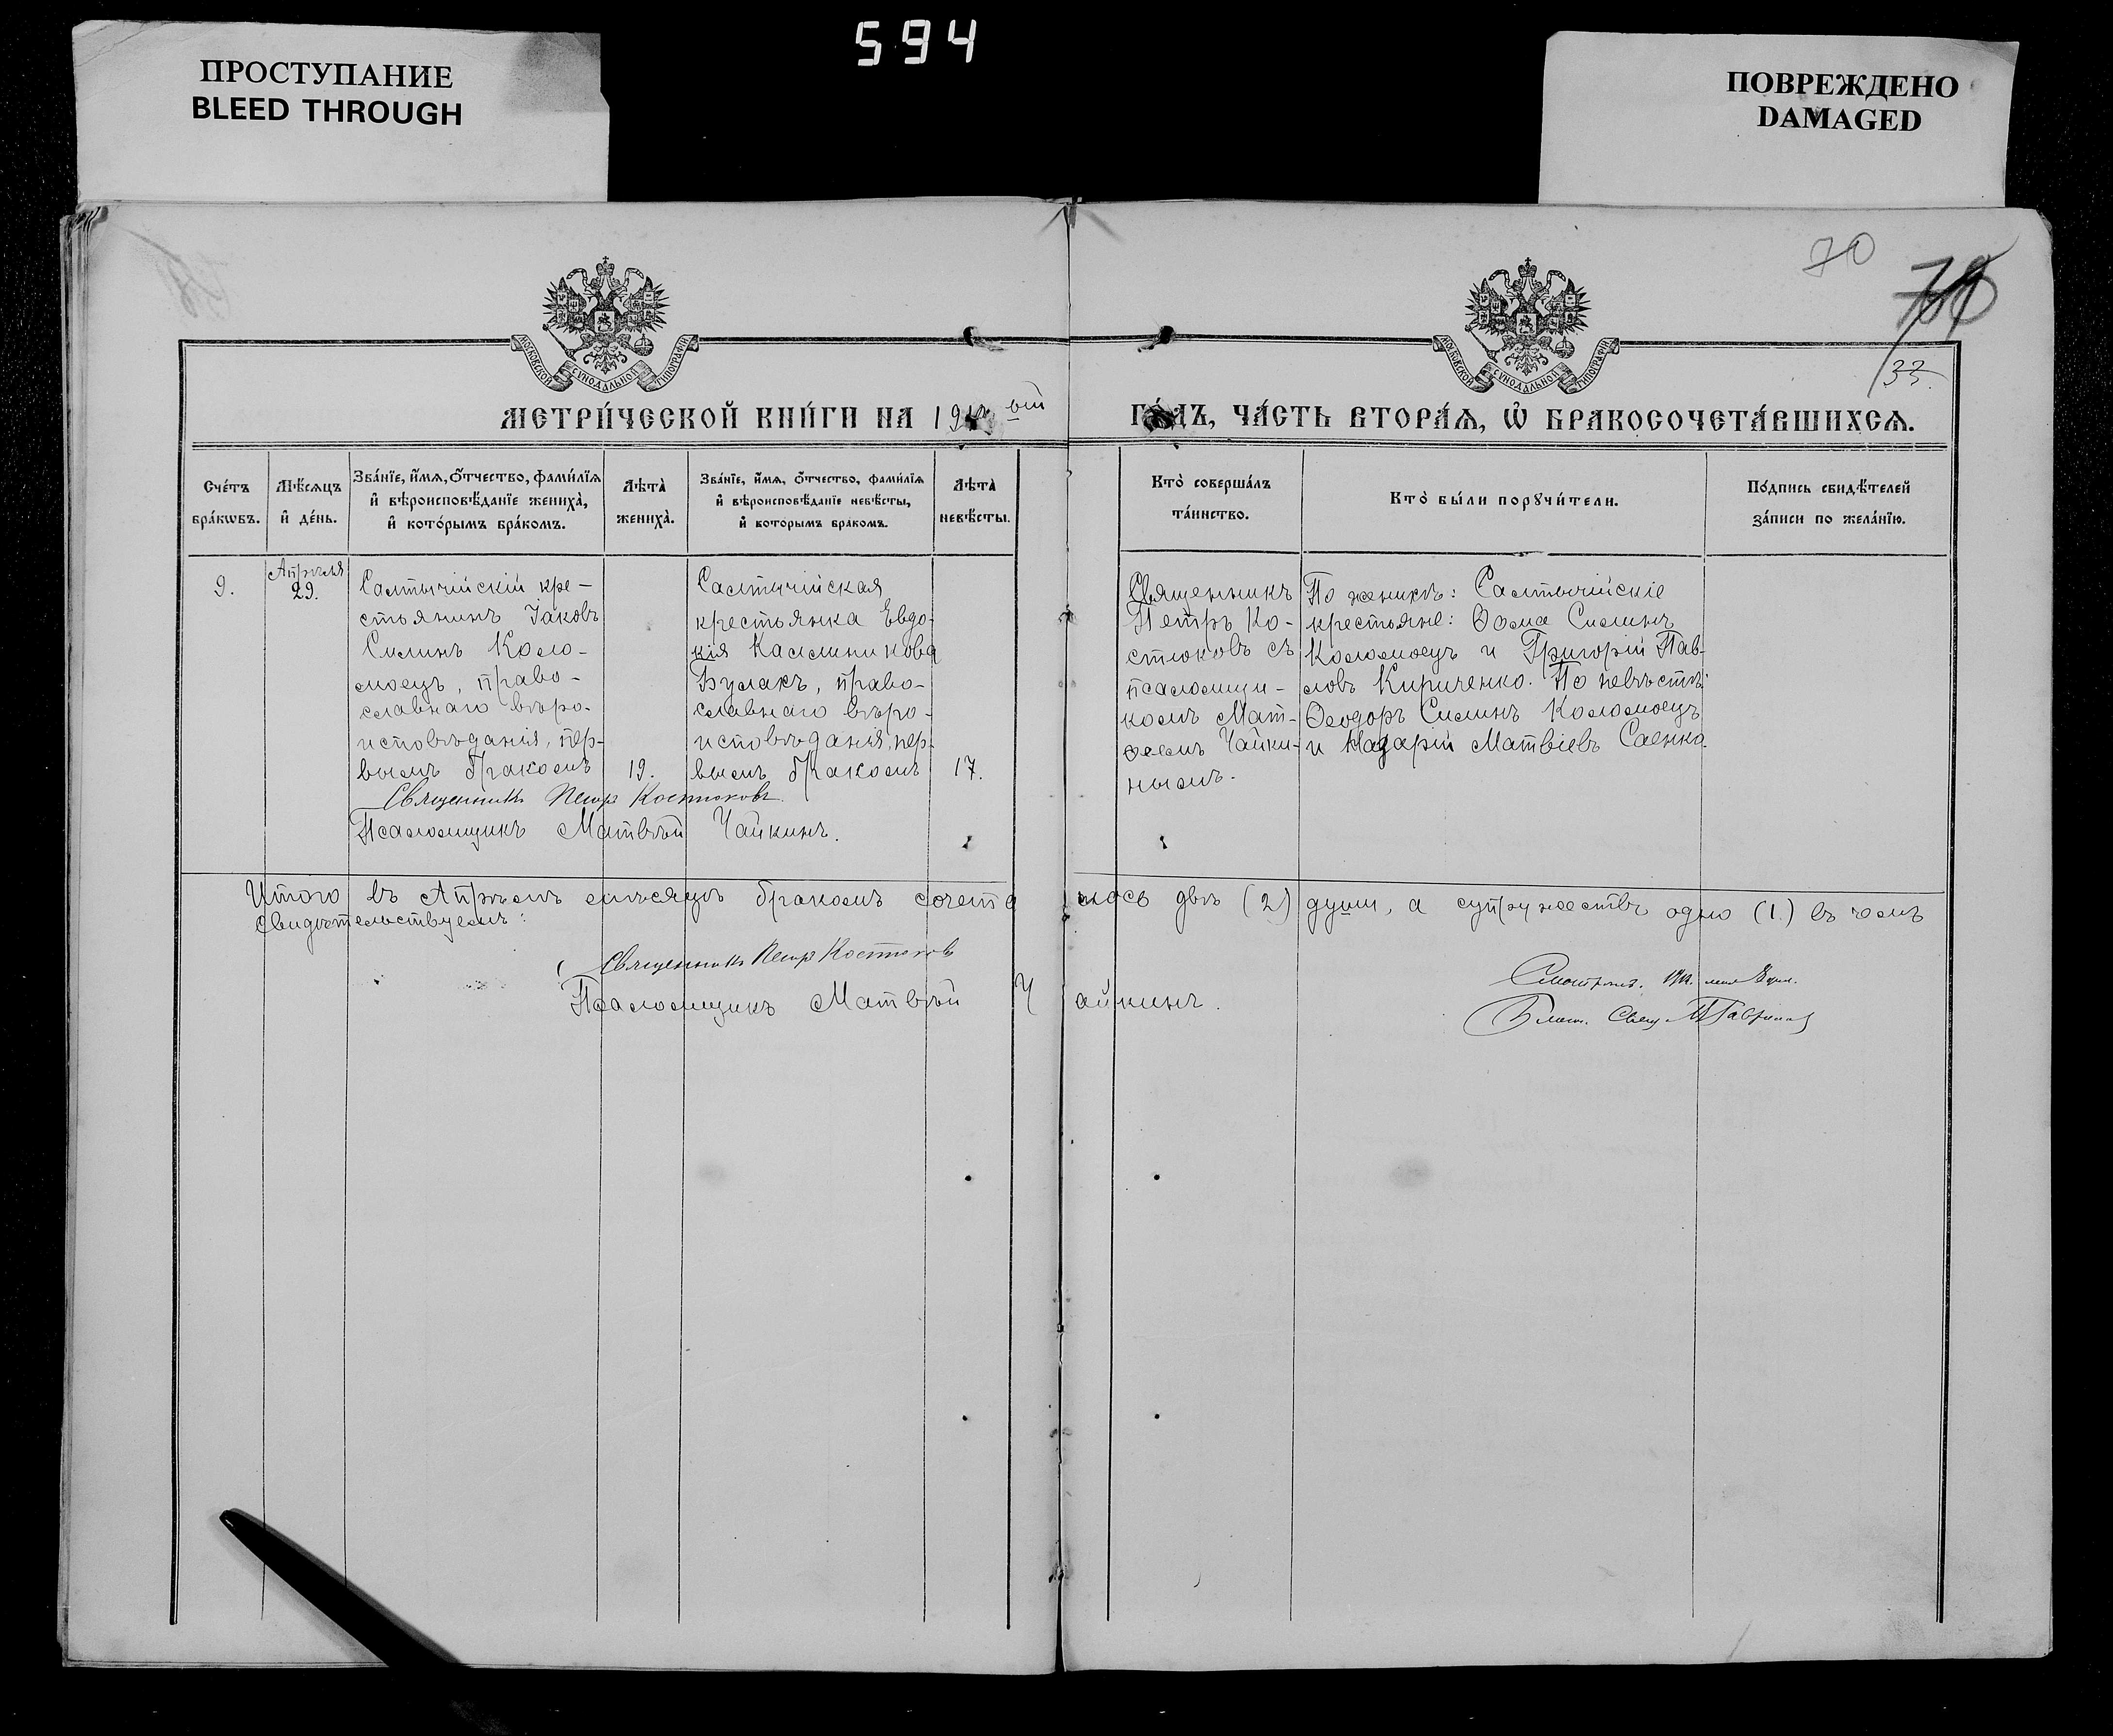 594
ПРОСТУПАНИЕ
BLEED THROUGH
ПОВРЕЖДЕНО
DAMAGED
70
33.
МОСКОВСКОЙ СѴНОДАЛЬНОЙ ТИПОГРАФІИ
МОСКОВСКОЙ СѴНОДАЛЬНОЙ ТИПОГРАФІИ
МЕТРИ́ЧЕСКОЙ КНИ́ГИ НА
ГО́ДЪ, ЧА́СТЬ ВТОРА́Ѧ, Ѡ҆ БРАКОСОЧЕТА́ВШИХСѦ.
Сче́тъ бра́кѡвъ.
Мѣ́сѧцъ и҆ де́нь.
Зва́нїе, и҆́мѧ, ѻ҆́тчество, фами́лїѧ
и҆ вѣроисповѣ́данїе жениха̀,
и҆ кото́рымъ бра́комъ.
Лѣта̀ жениха̀.
Зва́нїе, и҆́мѧ, ѻ҆́тчество, фами́лїѧ
и҆ вѣроисповѣ́данїе невѣ́сты,
и҆ кото́рымъ бра́комъ.
Лѣта̀ невѣ́сты.
Кто̀ соверша́лъ та́инство.
Кто̀ бы́ли порꙋчи́тели.
По́дпись свидѣ́телей
за́писи по жела́нїю.
9.
Апрѣля
29.
Салтычійскій кре-
стьянинъ Іаковъ
Силинъ Коло-
моецъ, право-
славнаго вѣро-
исповѣданія, пер-
вымъ бракомъ
19.
Салтычійская
крестьянка Евдо-
кія Каллиникова
Булакъ, право-
славнаго вѣро-
исповѣданія, пер-
вымъ бракомъ
17.
Священникъ
Петръ Ко-
стюковъ съ
псаломщи-
комъ Мат-
ѳеемъ Чайки-
нымъ.
По женихѣ: Салтычійскіе
крестьяне: Ѳома Силинъ
Коломоецъ и Григорій Пав-
ловъ Кириченко. По невѣстѣ:
Ѳеодоръ Силинъ Коломоецъ
и Назарій Матвіевъ Саенко.
Священникъ Петръ Костюковъ
Псаломщикъ Матвѣй Чайкинъ.
Итого въ Апрѣлѣ мѣсяцѣ бракомъ сочета лось двѣ (2) души, а супружествъ одно (1.) въ чемъ
свидѣтельствуемъ:
Священникъ Петръ Костюковъ
Псаломщикъ Матвѣй Чайкинъ.
Смотрѣлъ.
Благ. Свящ.